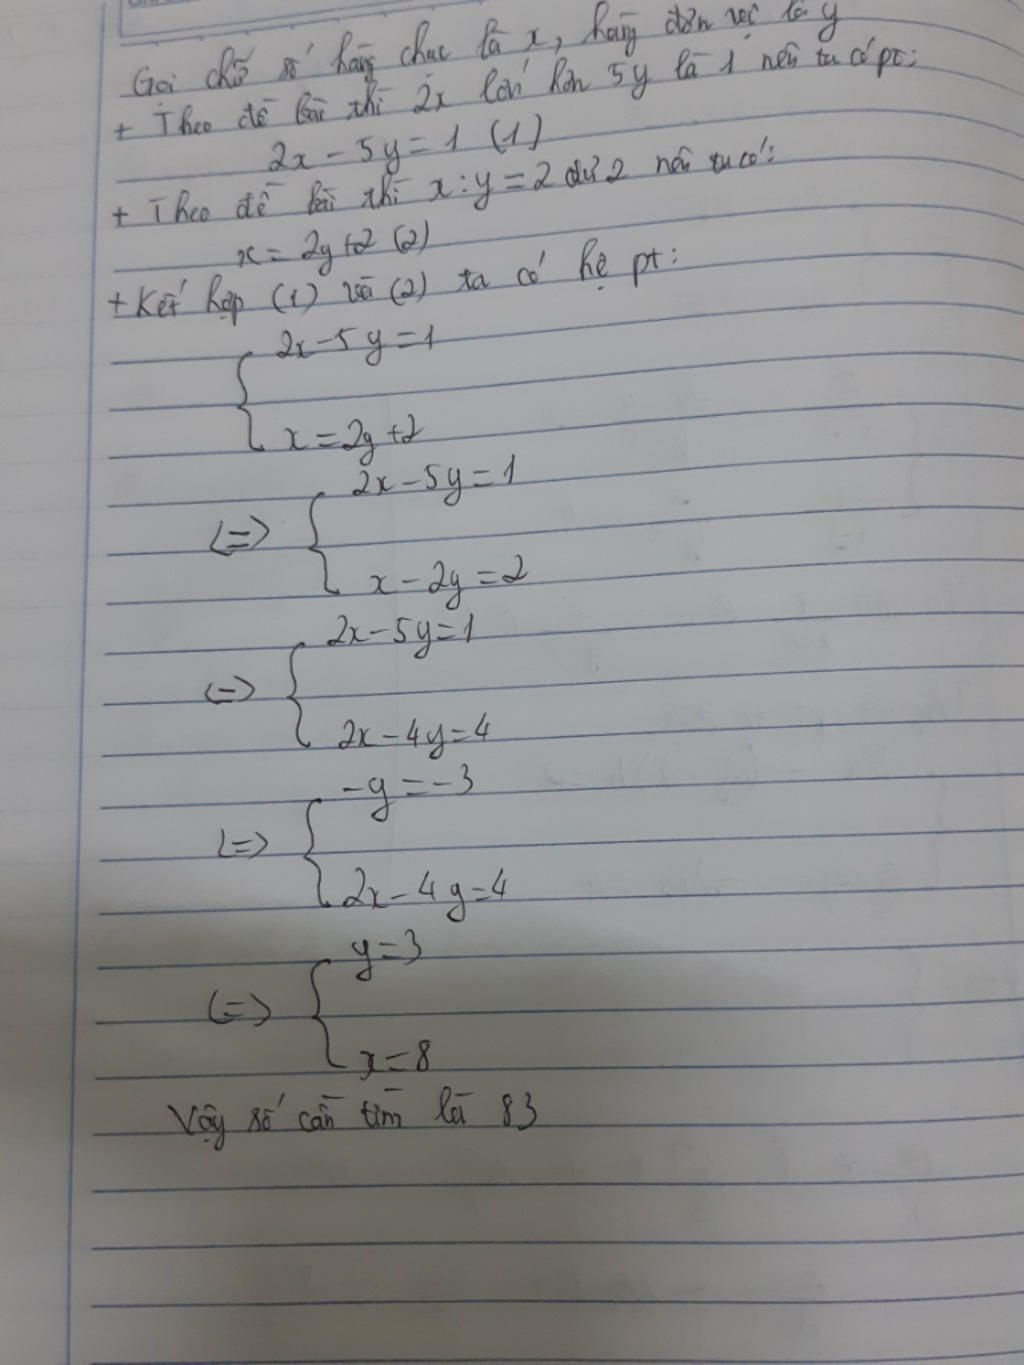 Gọi chữ số hàng chục là x, hàng đơn vị là y
+ Theo đề bài thì 2x lớn hơn 5y là 1 nên ta có pt:
2x - 5y = 1 (1)
+ Theo đề bài thì x : y = 2 dư 2 nên ta có:
x = 2y + 2 (2)
+ Kết hợp (1) và (2) ta có hệ pt:
2x - 5y = 1
x = 2y + 2
2x - 5y = 1
(=) {
x - 2y = 2
2x - 5y = 1
(=) {
2x - 4y = 4
-y = -3
(=) {
2x - 4y = 4
y = 3
(=) {
x = 8
Vậy số cần tìm là 83